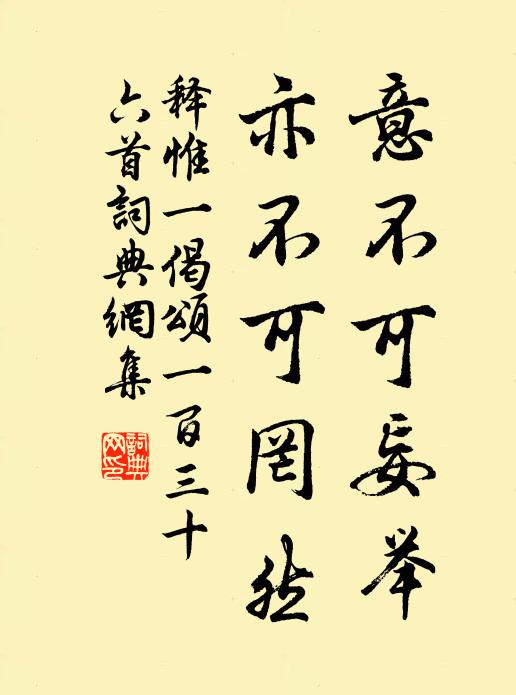 意不可妄举
亦不可罔然
释惟一偈颂一百三十
六首詞典網集
詞典
网印